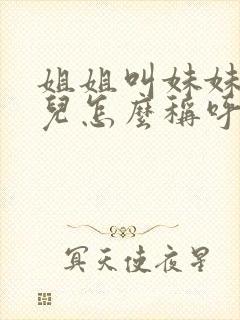 姐姐叫妹妹
兒怎麼稱呼
冥天使夜星